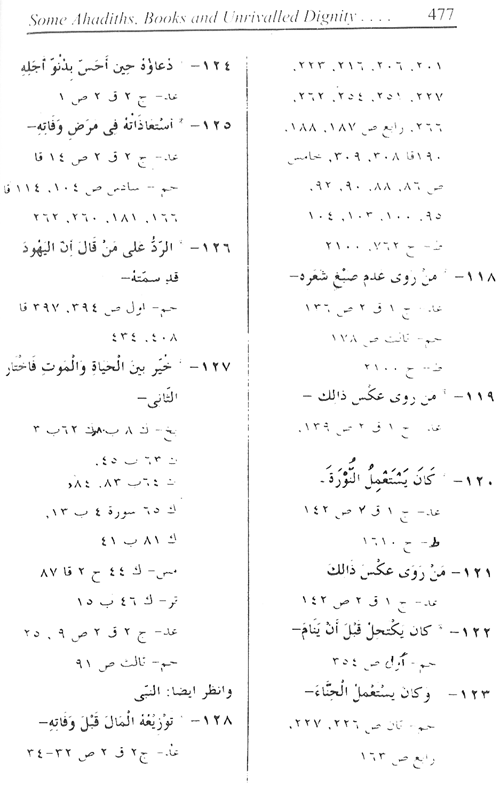 Some Ahadiths, Books and Unrivalled Dignity . . . . 477
٢٠١، ٢٠٦، ٢١٦، ٢٢٣،
٢٢٧، ٢٥١، ٢٥٤، ٢٦٢،
٢٦٦، رابع ص ١٨٧، ١٨٨،
١٩٠قا ٣٠٨، ٣٠٩، خامس
ص ٨٦، ٨٨، ٩٠، ٩٢،
٩٥، ١٠٠، ١٠٣، ١٠٤
ط- ح ٧٦٢، ٢١٠٠
١١٨- مَنْ روى عدم صَبْغ شَعَره-
عد- ج ١ ق ٢ ص ١٣٦
حم- ثالث ص ١٧٨
ط- ح ٢١٠٠
١١٩- من روى عكْس ذالك -
عد- ج ١ ق ٢ ص ١٣٩،
١٢٠- كَانَ يَسْتَعْمِلُ النُّوْرَةَ-
عد- ج ١ ق ٢ ص ١٤٢
ط- ح ١٦١٠
١٢١- مَنْ رَوَى عكْسَ ذَالكَ
عد- ج ١ ق ٢ ص ١٤٢
١٢٢- كان يكْتحل قَبْلَ أَنْ يَنَامَ-
حم- أول ص ٣٥٤
١٢٣- وكان يسْتعْملُ الْحنَّاءَ-
حم- ثان ص ٢٢٦، ٢٢٧،
رابع ص ١٦٣
١٢٤- دُعاؤهُ حين أحَسّ بدُنُوّ أجَله
عد- ج ٢ ق ٢ ص ١
١٢٥- اسْتعَاذَاتُهُ فى مرَض وَفَاته-
عد- ج ٢ ق ٢ ص ١٤ قا
حم- سادس ص ١٠٤، ١١٤ قا
١٦٦، ١٨١، ٢٦٠، ٢٦٢
١٢٦- الرَدُّ على مَنْ قَالَ انّ اليَهُودَ
قد سمّتهُ-
حم- اول ص ٣٩٤، ٣٩٧ قا
٤٠٨، ٤٣٤
١٢٧- خُيّر بينَ الْحيَاة والْمَوت فَاخْتار
الثّانى-
بخ- ك ٨ ب ٨٠، ك ٦٢ ب ٣
ك ٦٣ ب ٤٥،
ك ٦٤ ب ٨٣، ٨٤،
ك ٦٥ سورة ٤ ب ١٣،
ك ٨١ ب ٤١
مس- ك ٤٤ ح ٢ قا ٨٧
تر- ك ٤٦ ب ١٥
عد- ج ٢ ق ٢ ص ٩، ٢٥
حم- ثالث ص ٩١
وانظر ايضا: النبّى
١٢٨- توْزيْعُهُ الْمَالَ قَبْلَ وَفَاته-
عد- ج٢ ق ٢ ص ٣٢-٣٤